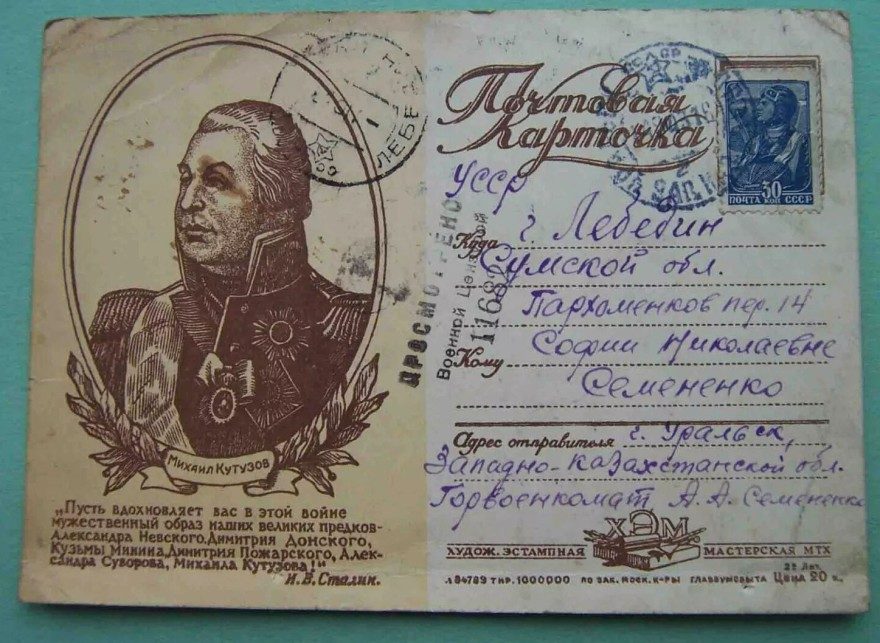 Михаил Кутузов
„Пусть вдохновляет вас в этой войне
мужественный образ наших великих предков-
Александра Невского, Димитрия Донского,
Кузьмы Минина, Димитрия Пожарского, Алек-
сандра Суворова, Михаила Кутузова!"
И. В. Сталин.
СССР
ЛЕБЕ
ПРОСМОТРЕНО
Военной Цензурой
Почтовая
Карточка
30
ПОЧТА КОП СССР
УССР
Куда г. Лебедин
Сумской обл.
Пархоменков пер. 14
Кому Софии Николаевне
Семененко
Адрес отправителя г. Уральск,
Западно-Казахстанской обл.
Горвоенкомат А. А. Семененко
ХЭМ
ХУДОЖ. ЭСТАМПНАЯ МАСТЕРСКАЯ МТХ
Л84789 ТИР. 1000000 ПО ЗАК. МОСК. К-РЫ ГЛАВБУМСБЫТА Цена 20 к.